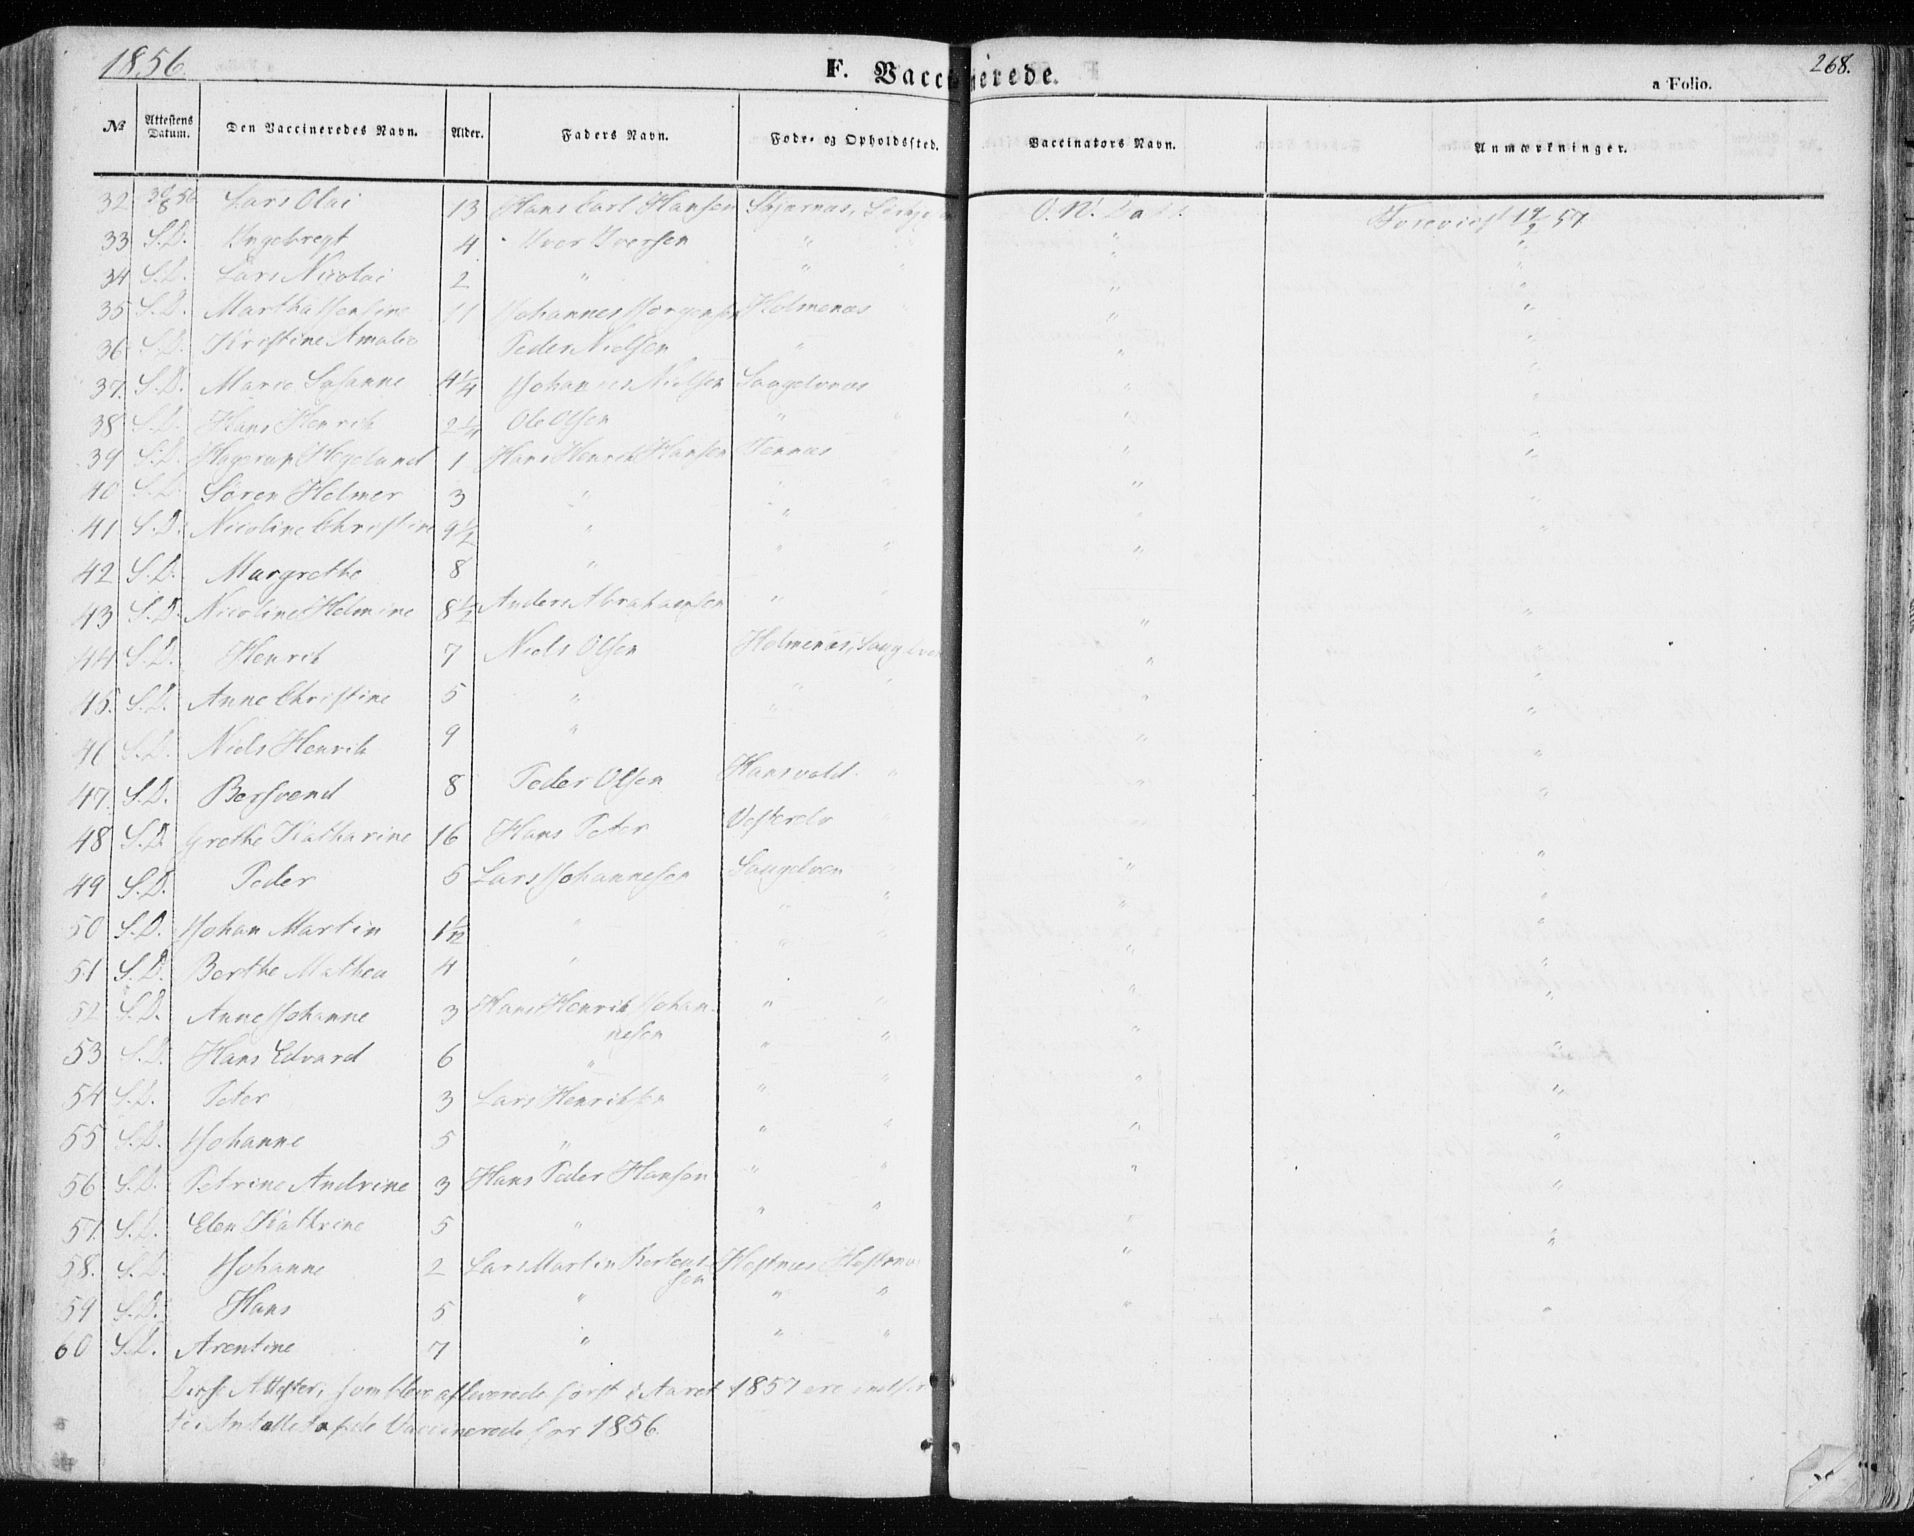 1856
F. Vaccinerede.
268.
a Folio.
No Attestens Datum. Den Vaccineredes Navn. Alder. Faders Navn. Føde- og Opholdssted. Vaccinators Navn. Anmærkninger.
32 30/8 56 Lars Olai 13 Hans Carl Hansen
33 S.D. Ingebregt 4 Iver Iversen " " "
34 S.D. Lars Nicolai 2 " " " " "
35 S.D. Martha Jensine 11 Johannes Jørgensen Holmenæs " "
36 S.D. Kristine Amalie Peder Nielsen " " "
37. S.D. Marie Susanne 4 1/4 Johannes Nielsen Saugelvnæs " "
38 S.D. Hans Henrik 2 1/4 Ole Olsen " " " "
39 S.D. Hagerup Hegelund 1 Hans Henrik Hansen Tennæs " "
40 S.D. Søren Helmer 3 " " " " "
41 S.D. Nicoline Christine 9 1/2 " " "
42 S.D. Margrethe 8 " " " "
43 S.D. Nicoline Helmine 8 1/2 Anders Abrahamsen " " "
44 S.D. Henrik 7 Niels Olsen Holmenæs, Saugelven " "
45. S.D. Anne Christine 5 " " " " "
46 S.D. Niels Henrik 9 " " " "
47. S.D. Bersvend 8 Peder Olsen Hansvold " " "
48 S.D. Grethe Katharine 16 Hans Peter Vesterelv
49 S.D. Peder 5 Lars Johannesen Saugelven " "
50 S.D. Johan Martin 1 1/12 " " " " "
51 S.D. Berthe Mathea 4 " " " "
52 S.D. Anne Johanne 3 Hans Henrik Johan-
nesen " " "
53 S.D. Hans Edvard 6 " " " " "
54 S.D. Peter 3 Lars Henriksen " " " "
55 S.D. Johanne 5 " " " " "
56 S.D. Petrine Andrine 3 Hans Peder Hansen " " " "
57. S.D. Elen Kathrine 5 " " " " "
58. S.D. Johanne 2 Lars Martin Berteus-
sen Hestnæs " "
59 S.D. Hans 5 " " " " "
60 S.D. Arentine 7 " " "
Disse Attester, som bleve afleverede først i Aaret 1857 ere
Antallet af de Vaccinerede for 1856.